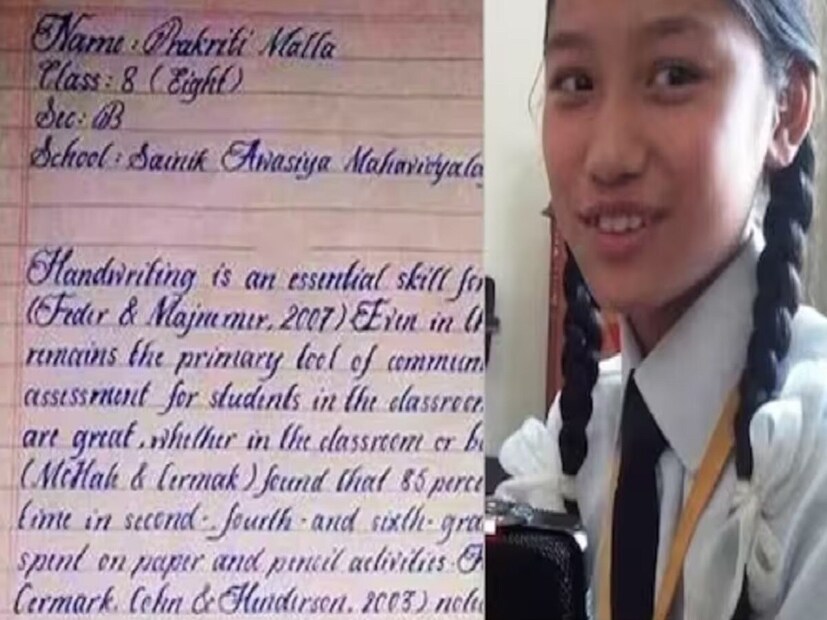 Name : Prakriti Malla
Class : 8 (Eight)
Sec : B
School : Sainik Awasiya Mahavidyala
Handwriting is an essential skill for
(Feder & Majnemer, 2007) Even in th
remains the primary tool of commun
assessment for students in the classroom
are great , whether in the classroom or
(McHale & Cermak) found that 85 perce
time in second-, fourth - and sixth - gra
spent on paper and pencil activities.
Cermark, Cohn & Henderson, 2003) note